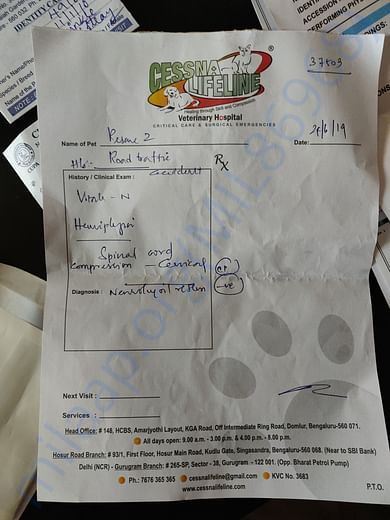 IDENTITY C
ACCESSION
PERFORMING PHYS
NOTE
37503
CESSNA
LIFELINE
®
Healing through Skill and Compassion
Veterinary Hospital
CRITICAL CARE & SURGICAL EMERGENCIES
Name of Pet Rescue 2 Date: 26/6/19
H/o:- Road traffic accident
Rx
History / Clinical Exam :
Vitals - N
Hemiplegia
Spinal cord
compression - Cervical
Diagnosis : Neurological
-ve
Next Visit :
Services :
Head Office: # 148, HCBS, Amarjyothi Layout, KGA Road, Off Intermediate Ring Road, Domlur, Bengaluru-560 071.
All days open: 9.00 a.m. - 3.00 p.m. & 4.00 p.m. - 8.00 p.m.
Hosur Road Branch: # 93/1, First Floor, Hosur Main Road, Kudlu Gate, Singasandra, Bengaluru-560 068. (Near to SBI Bank)
Delhi (NCR) - Gurugram Branch: # 265-SP, Sector - 38, Gurugram - 122 001. (Opp. Bharat Petrol Pump)
Ph.: 7676 365 365 cessnalifeline@gmail.com KVC No. 3683
www.cessnalifeline.com P.T.O.